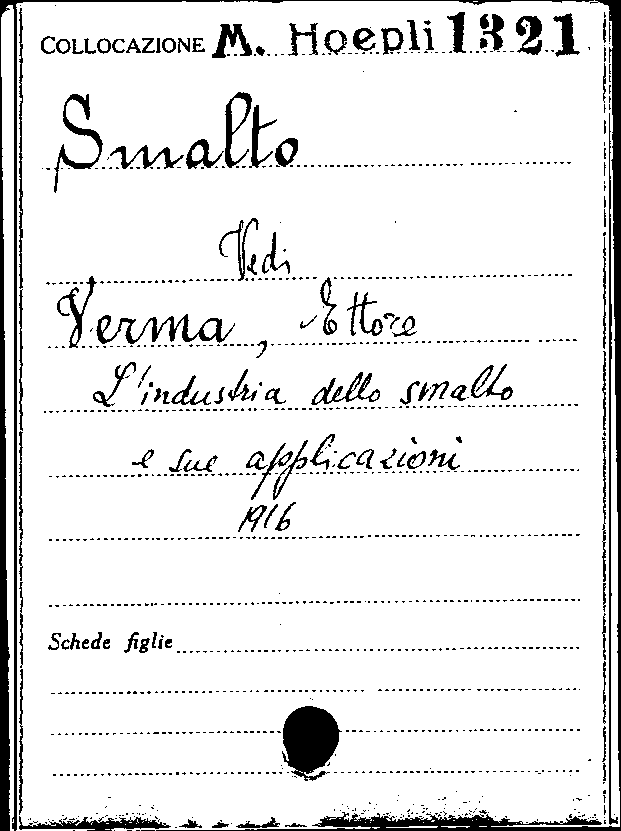 COLLOCAZIONE M. Hoepli 1321
Smalto
Vedi
Verma, Ettore
L'industria dello smalto
e sue applicazioni
1916
Schede figlie